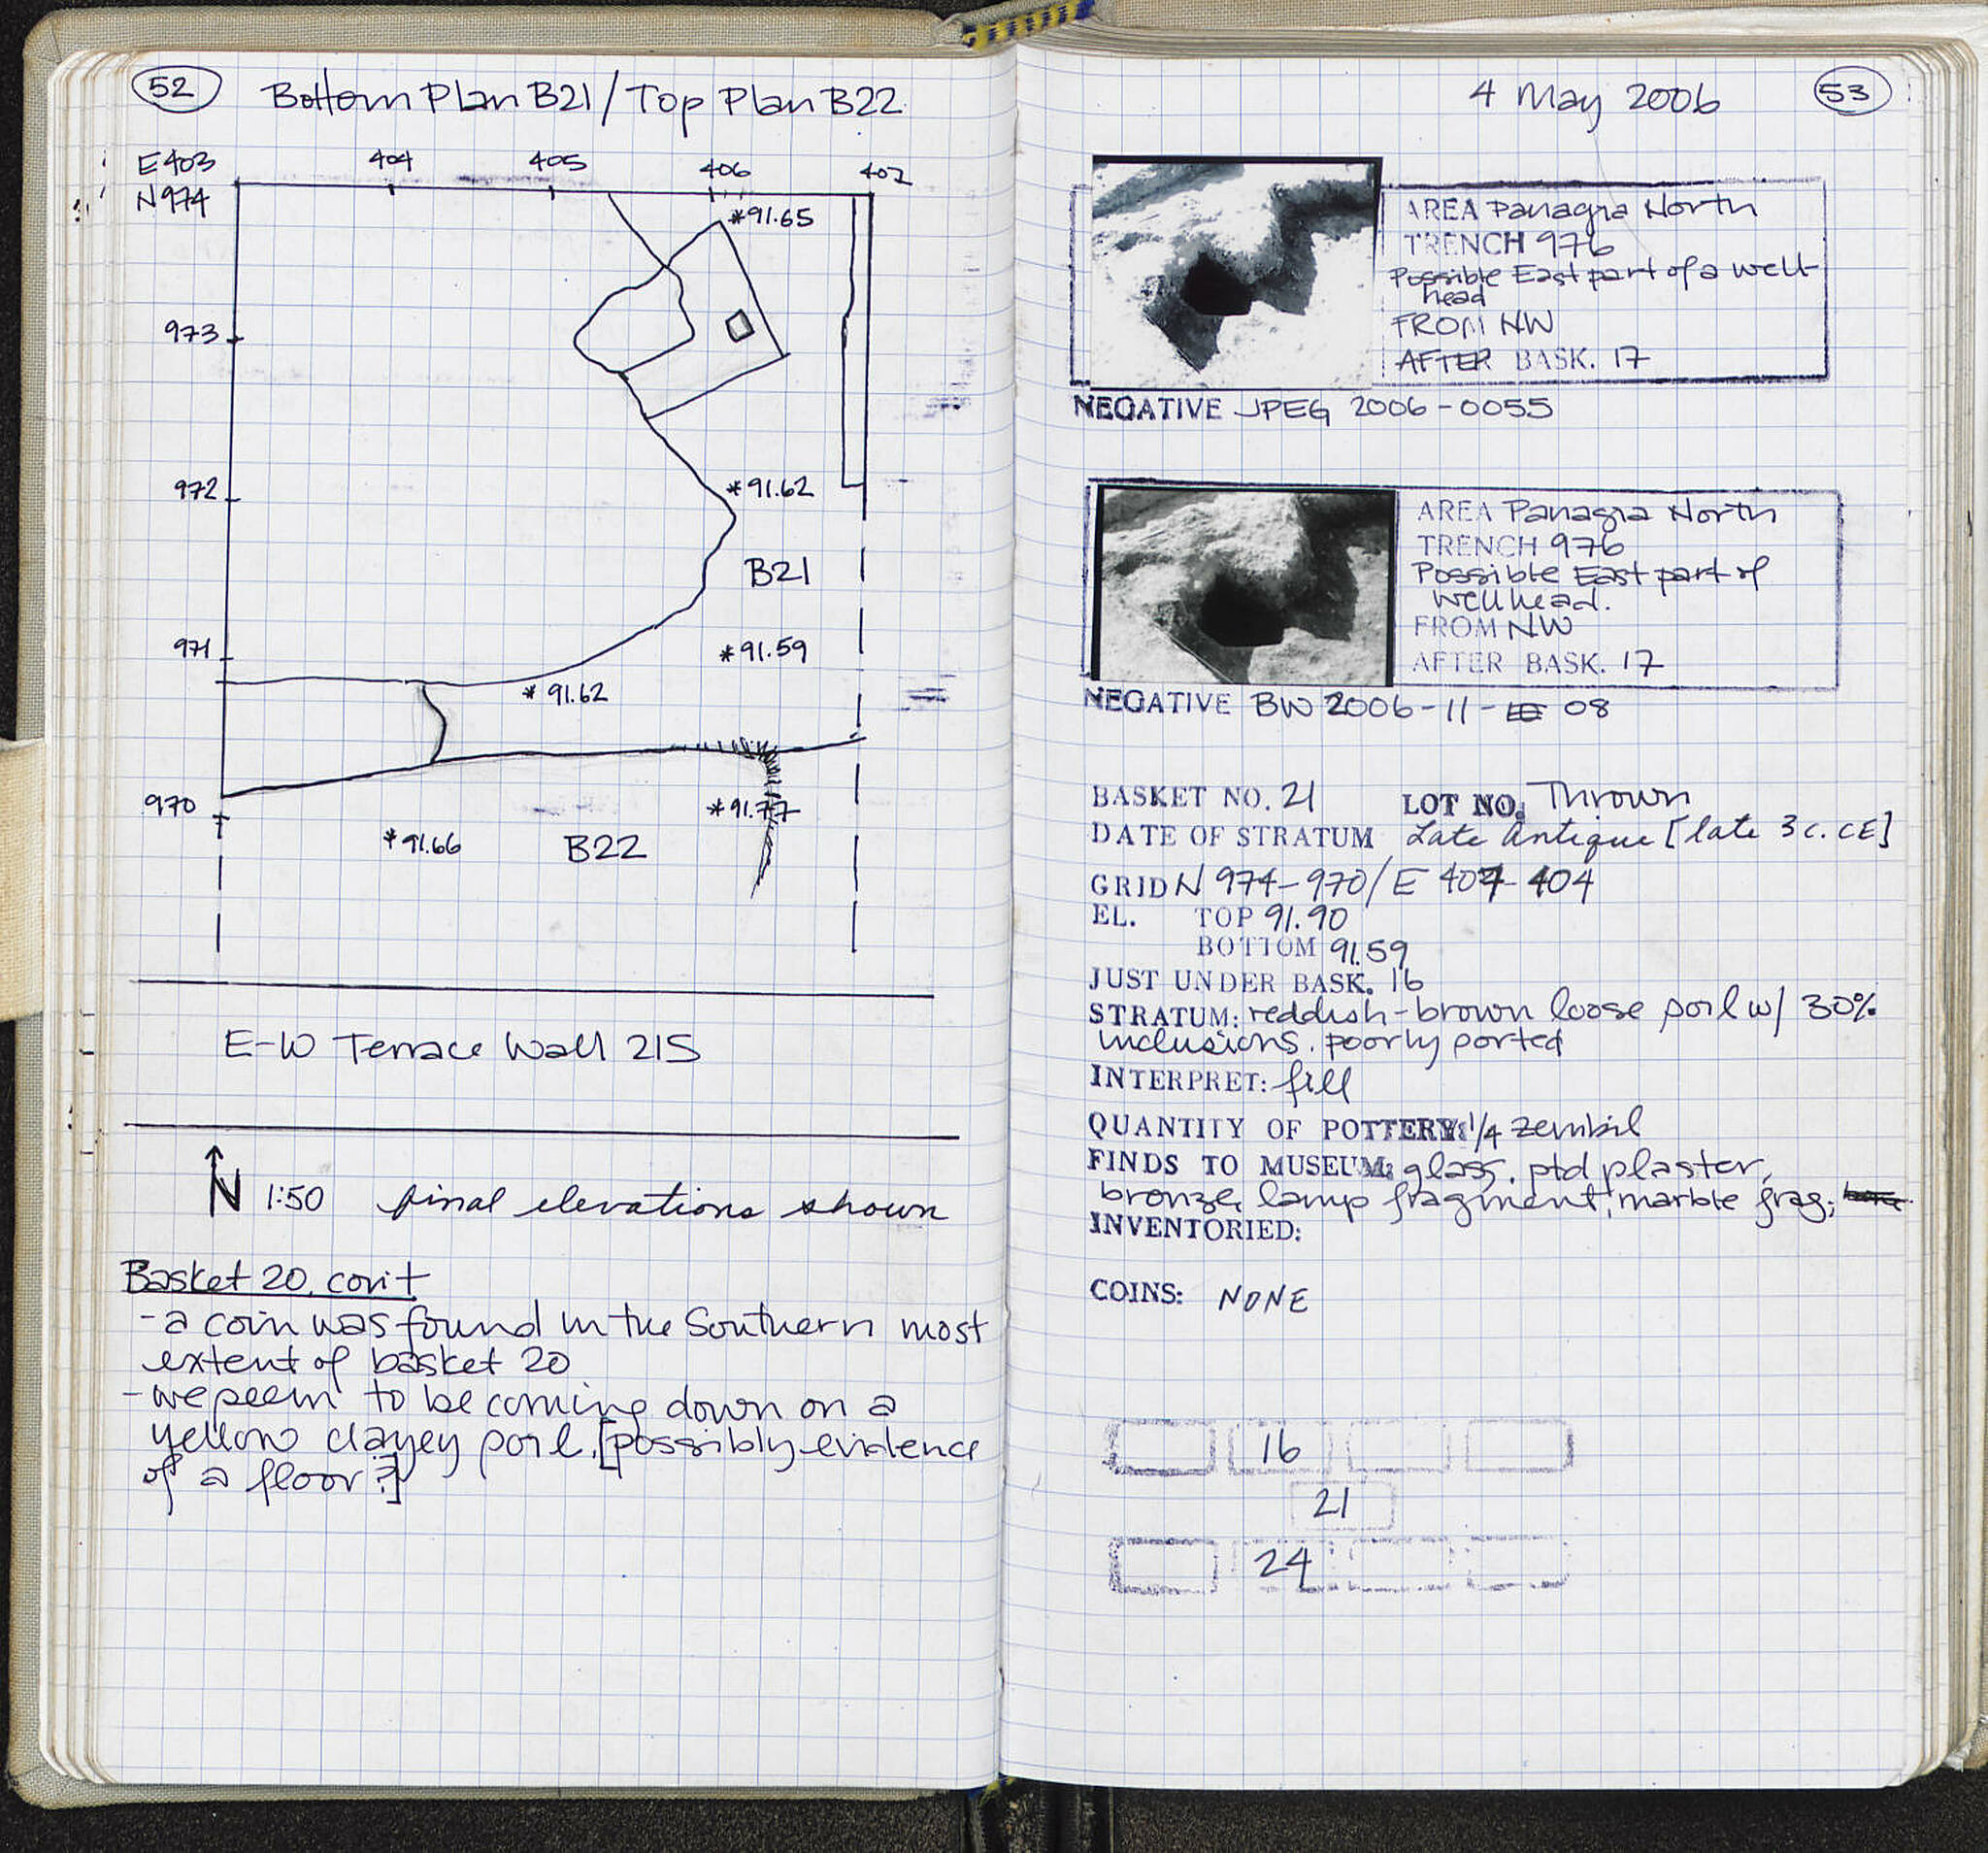 52 Bottom Plan B21/Top Plan B22
E403 404 405 406 407
N974
*91.65
973
972
*91.62
B21
971
*91.59
*91.62
970
*91.77
*91.66
B22
E-W Terrace Wall 215
N 1:50 final elevations shown
Basket 20, con't
- a coin was found in the Southern most
extent of basket 20
- we seem to be coming down on a
yellow clayey soil. [possibly evidence
of a floor?]
4 May 2006 53
AREA Panagia North
TRENCH 976
Possible East part of a well-
head
FROM NW
AFTER BASK. 17
NEGATIVE JPEG 2006-0055
AREA Panagia North
TRENCH 976
Possible East part of
wellhead.
FROM NW
AFTER BASK. 17
NEGATIVE BW 2006-11- 08
BASKET NO. 21 LOT NO. Thrown
DATE OF STRATUM Late Antique [late 3 c. CE]
GRID N 974-970/E 407-404
EL. TOP 91.90
BOTTOM 91.59
JUST UNDER BASK. 16
STRATUM: reddish-brown loose soil w/ 30%
inclusions. poorly sorted
INTERPRET: fill
QUANTITY OF POTTERY: 1/4 zembil
FINDS TO MUSEUM: glass, ptd plaster,
bronze, lamp fragment, marble frag;
INVENTORIED:
COINS: NONE
16
21
24